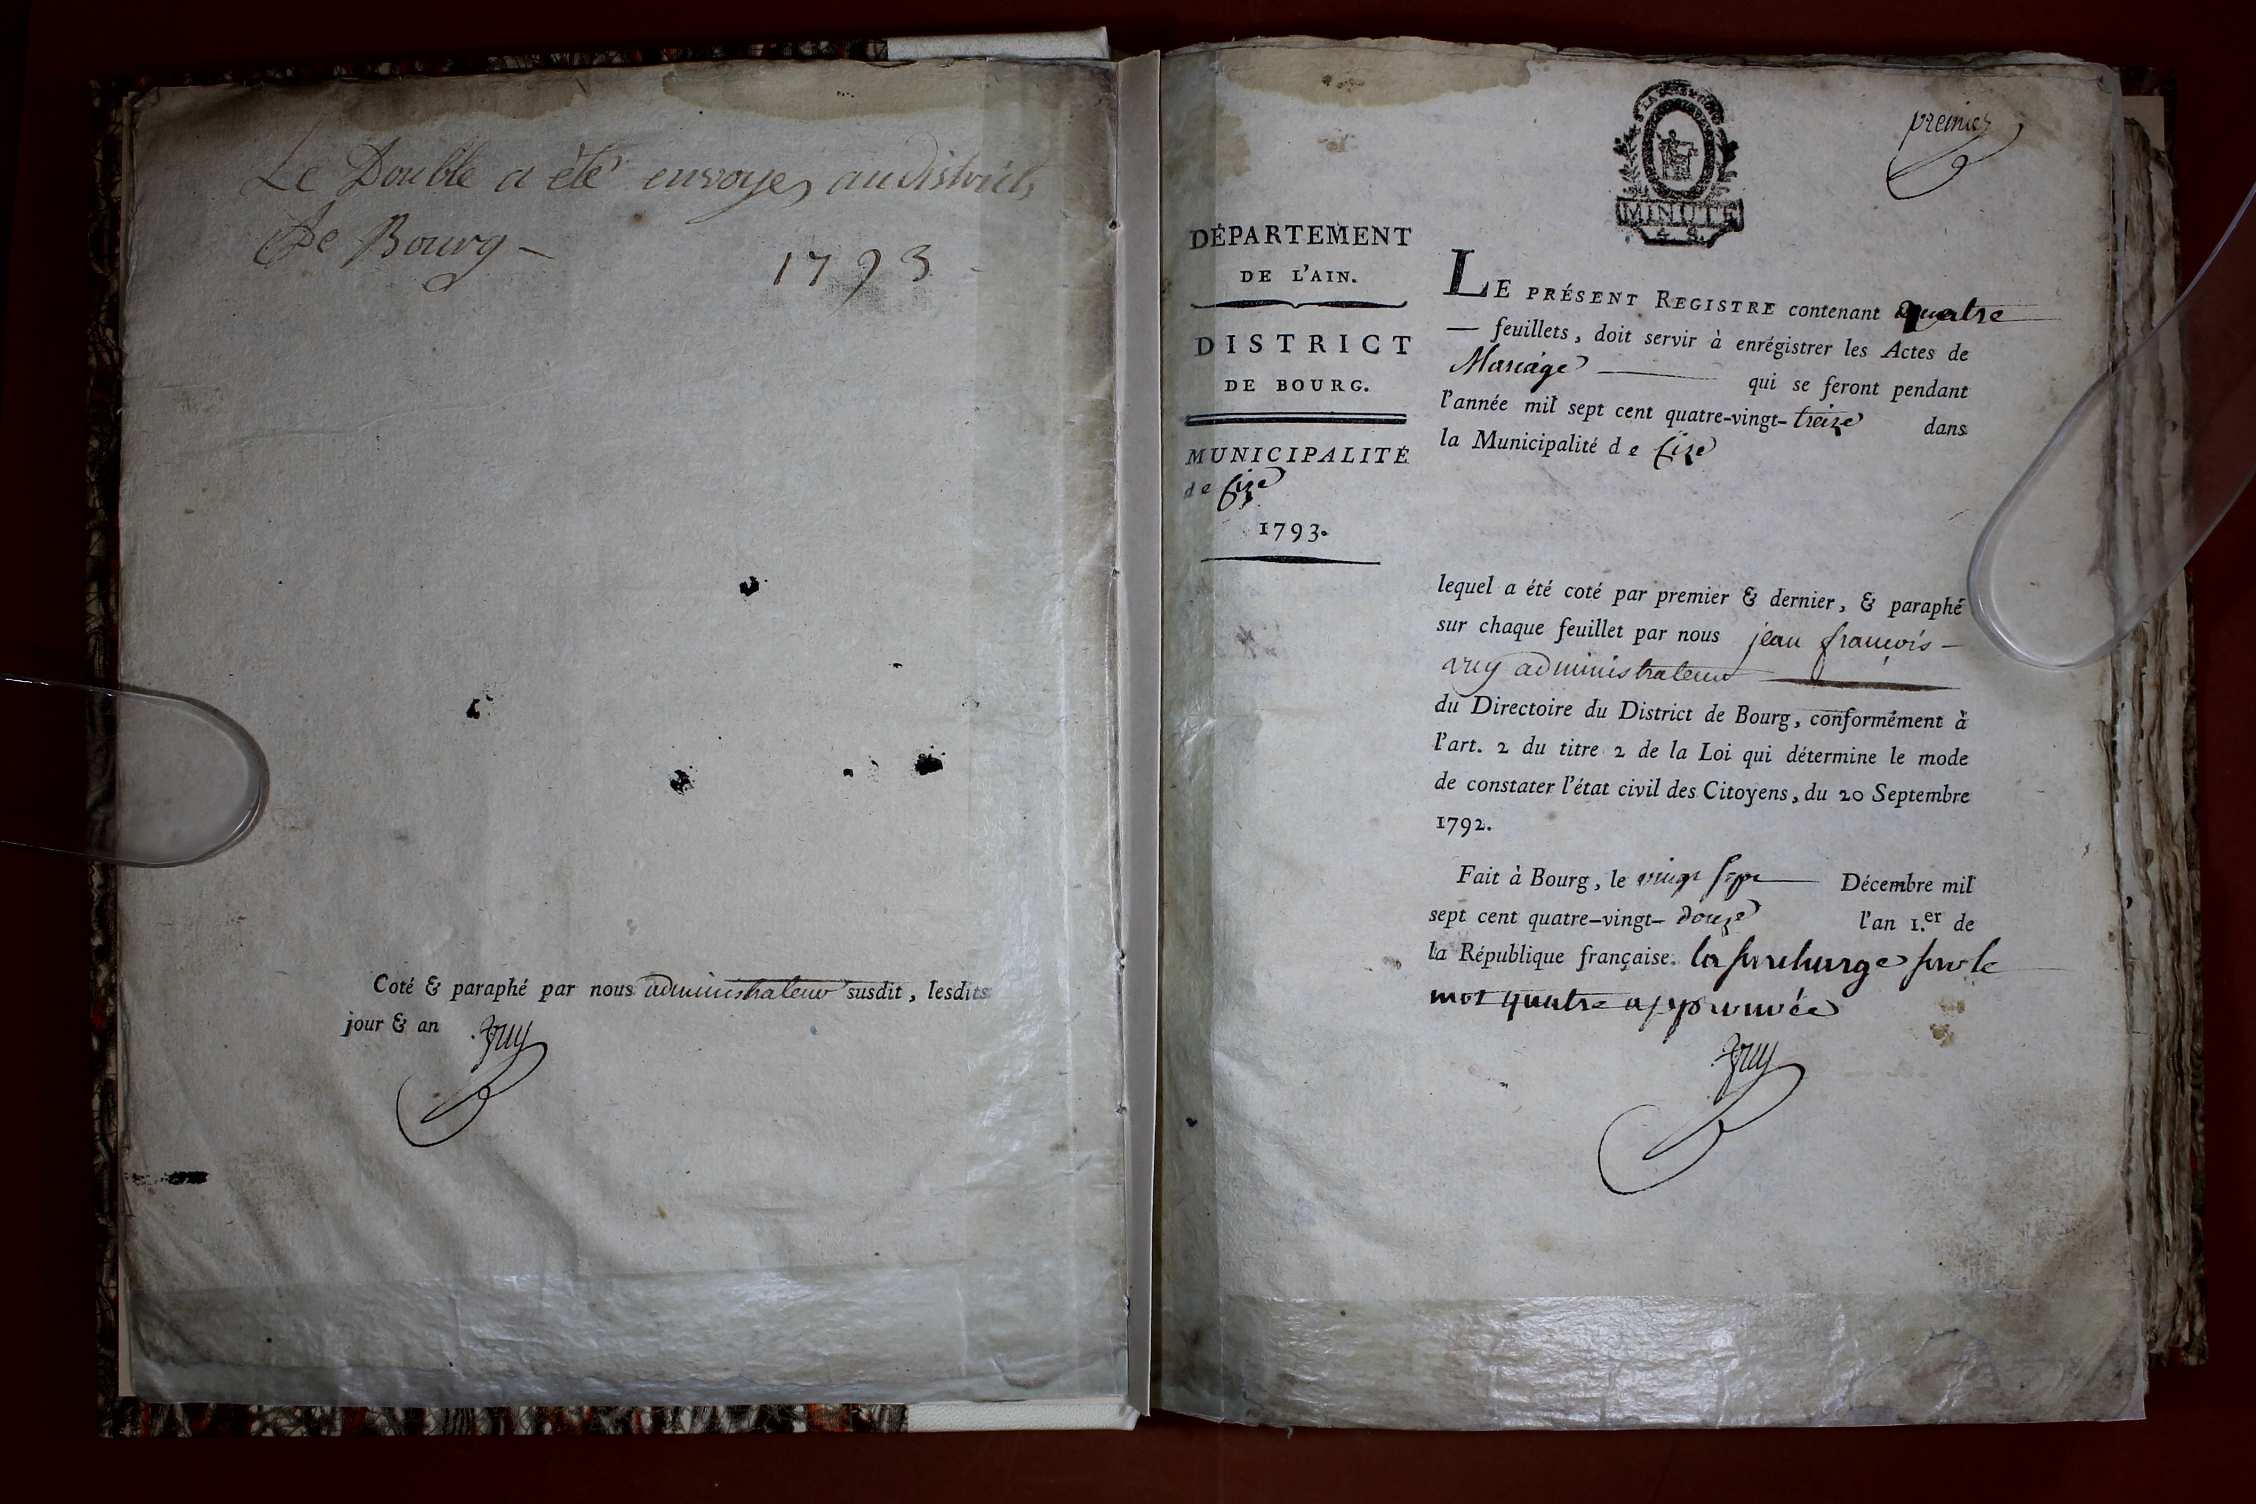 Le Double a été envoyé au District
De Bourg –
1793
Coté & paraphé par nous administrateur susdit, lesdits
jour & an
premier
MINUTE
4. S.
DÉPARTEMENT
DE L'AIN.
DISTRICT
DE BOURG.
MUNICIPALITÉ
de Cize
1793.
LE PRÉSENT REGISTRE contenant quatre
— feuillets, doit servir à enrégistrer les Actes de
Mariage — qui se feront pendant
l'année mil sept cent quatre-vingt-treize dans
la Municipalité de Cize
lequel a été coté par premier & dernier, & paraphé
sur chaque feuillet par nous jean françois –
administrateur
du Directoire du District de Bourg, conformément à
l'art. 2 du titre 2 de la Loi qui détermine le mode
de constater l'état civil des Citoyens, du 20 Septembre
1792.
Fait à Bourg, le vingt sept — Décembre mil
sept cent quatre-vingt-douze l'an 1.er de
la République française. la surcharge sur le
mot quatre approuvée